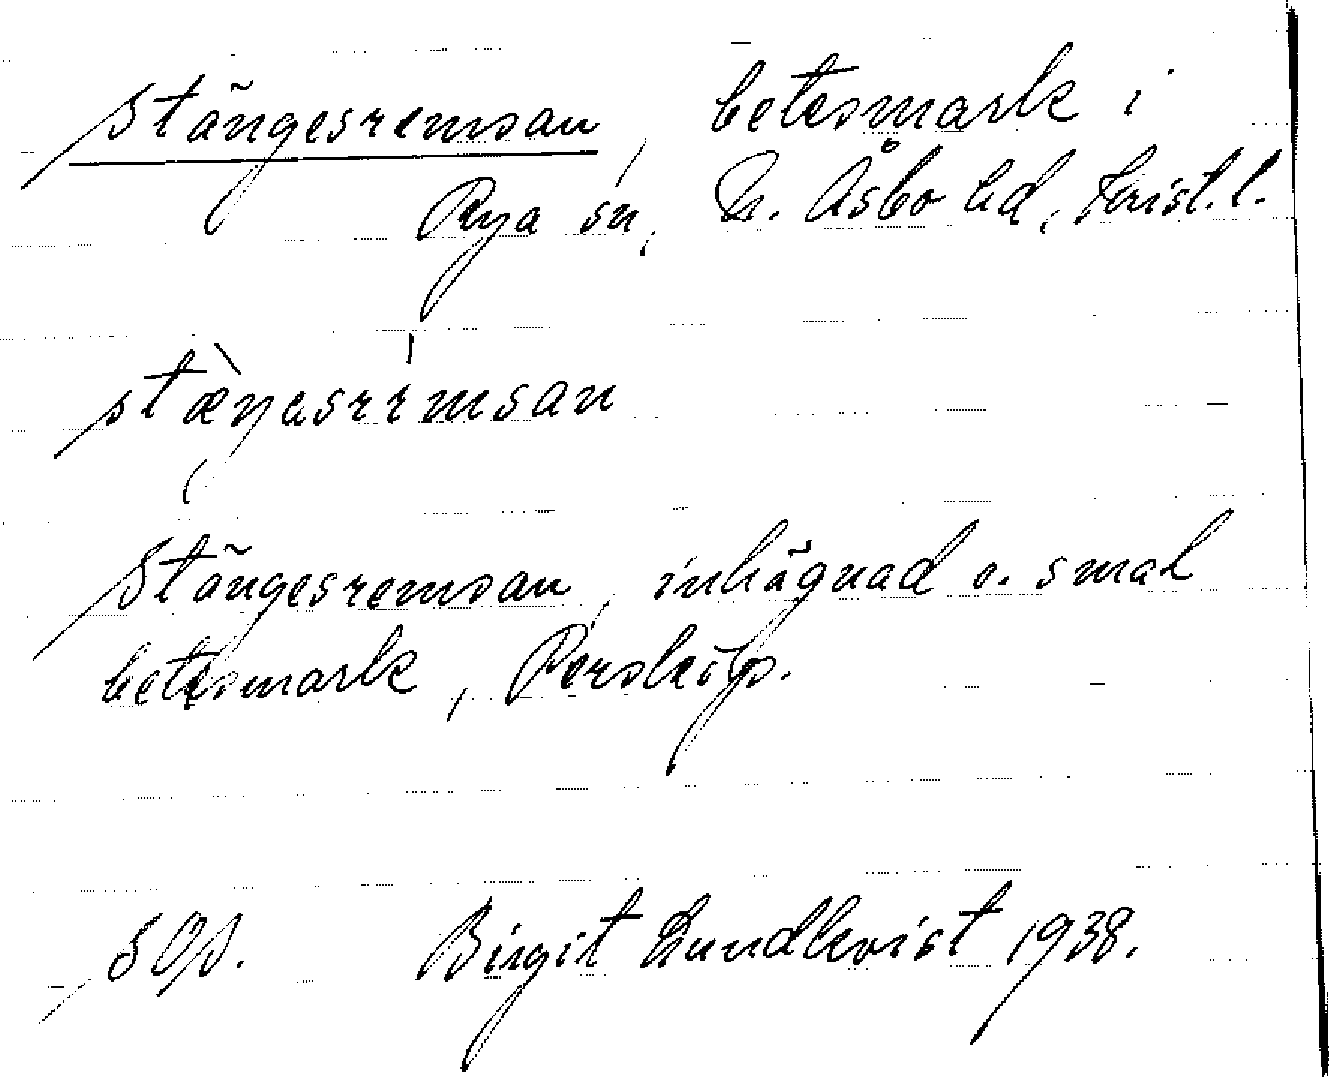 Stängesremsan, betesmark i
Rya sn, N. Åsbo hd, Krist. l.
stæŋasrimsan
Stängesremsan, inhägnad o. smal
betesmark, Persköp.
Birgit Lundkvist 1938.